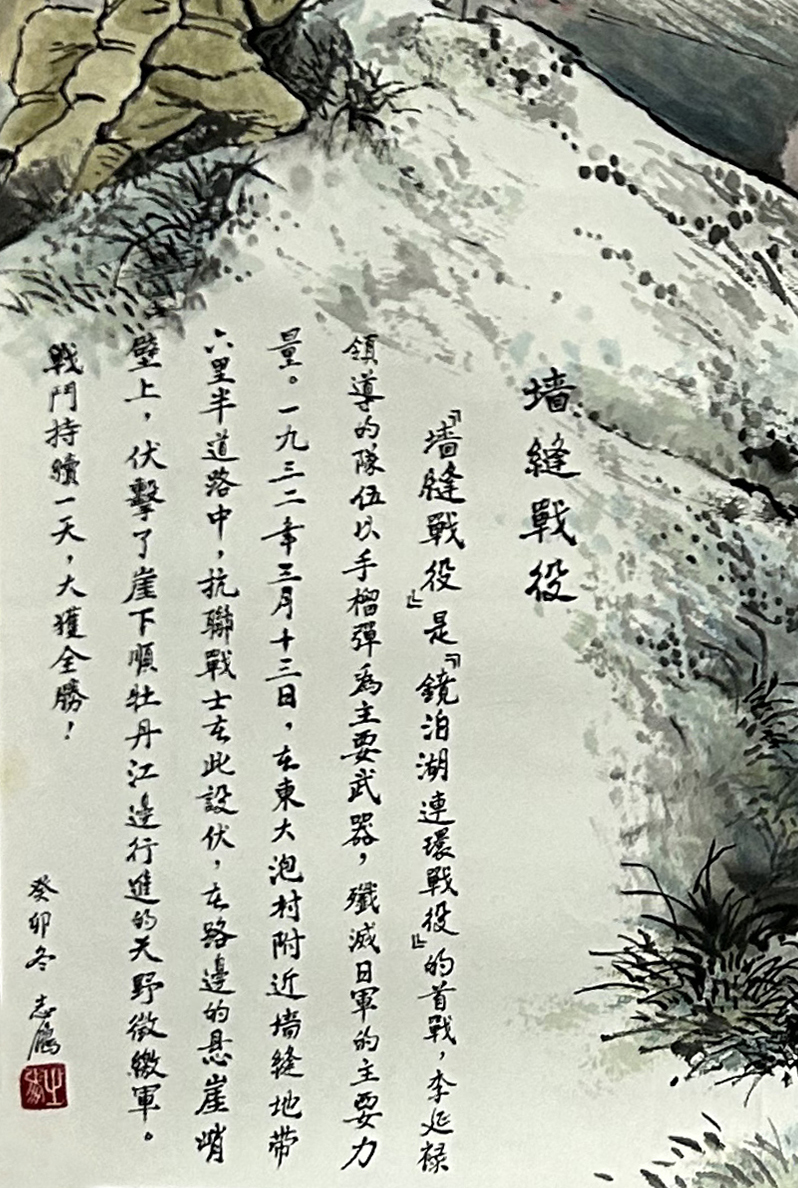 墙縫戰役
『墙縫戰役』是『鏡泊湖連環戰役』的首戰，李延禄
領導的隊伍以手榴彈為主要武器，殲滅日軍的主要力
量。一九三二年三月十三日，在東大泡村附近墙縫地带
六里半道路中，抗聯戰士在此設伏，在路邊的悬崖峭
壁上，伏擊了崖下順牡丹江邊行進的天野徵繳軍。
戰鬥持續一天，大獲全勝！
癸卯冬 志鷹